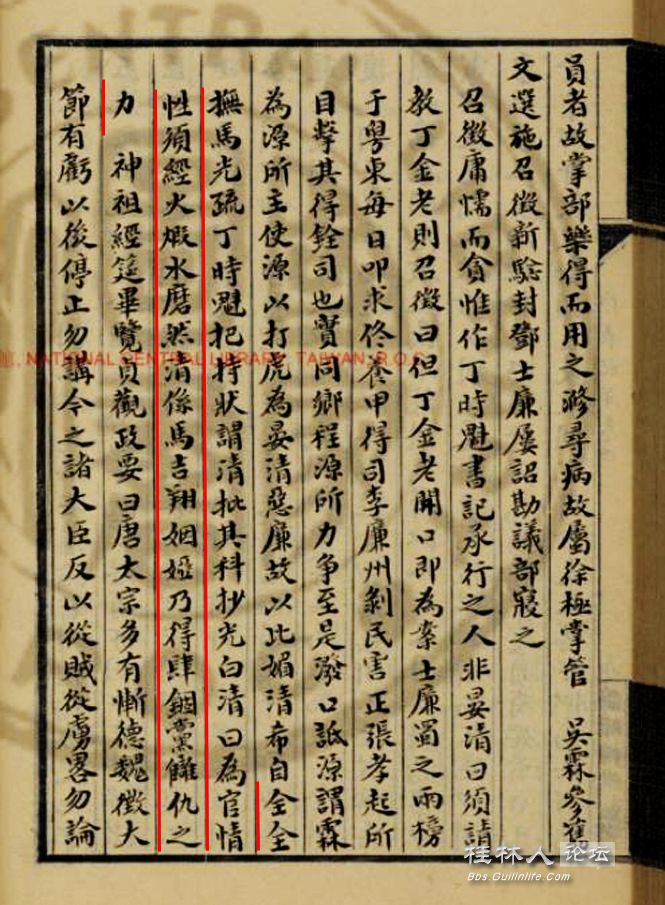 員者故掌部藥得而用之滁尋病故屬徐極掌管　吳霖參舊
文選施召徵新驗封鄧士廉屢詔勘議部寢之
召徵庸懦而貪惟作丁時魁書記承行之人非晏清曰須請
教丁金老則召徵曰但丁金老開口即為案士廉蜀之兩榜
于粵東每日叩求佟養甲得司李廉州剝民害正張孝起所
目擊其得銓司也實同鄉程源所力爭至是潑口詆源謂霖
為源所主使源以打虎為晏清惡廉故以比媚清希自全全
撫馬光疏丁時魁把持狀謂清批其科抄光白清曰為官情
性須經火煅水磨然清係馬吉翔姻婭乃得肆錮黨讎仇之
力　神祖經筵畢覽貞觀政要曰唐太宗多有慚德魏徵大
節有虧以後停止勿講今之諸大臣反以從賊從虜畧勿論
館, NATIONAL CENTRAL LIBRARY, TAIWAN, R.O.C.
桂林人论坛
Bbs.Guilinlife.Com